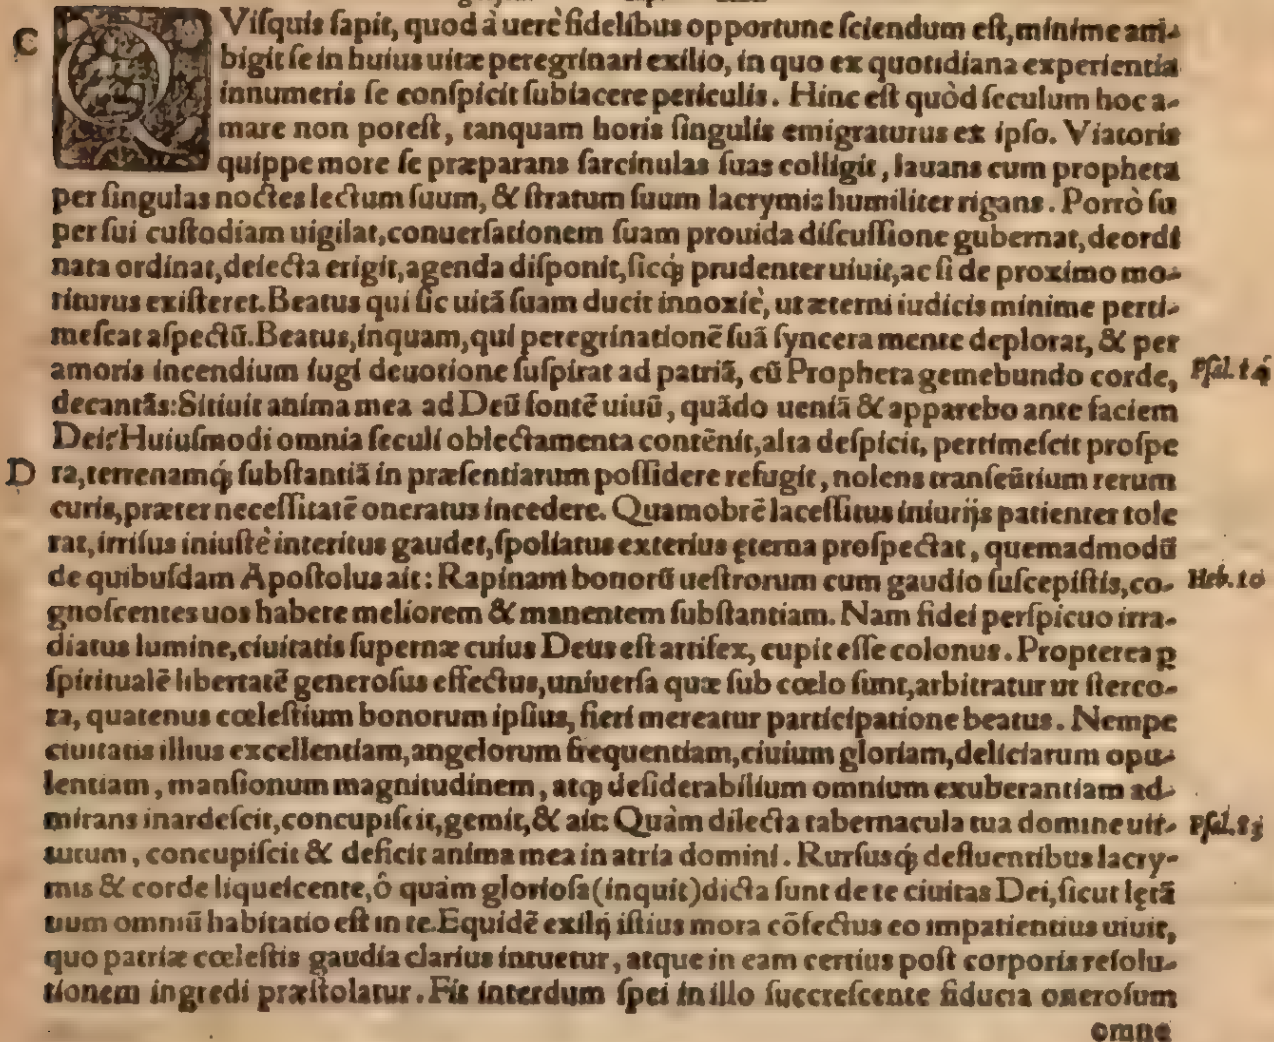 C
QViſquis ſapit, quod à uerè fidelibus opportune ſciendum eſt, minime am-
bigit ſe in huius uitæ peregrinari exilio, in quo ex quotidiana experientia
innumeris ſe conſpicit ſubiacere periculis. Hinc eſt quòd ſeculum hoc a-
mare non poteſt, tanquam horis ſingulis emigraturus ex ipſo. Viatoris
quippe more ſe præparans ſarcinulas ſuas colligit, lauans cum propheta
per ſingulas noctes lectum ſuum, & ſtratum ſuum lacrymis humiliter rigans. Porrò ſu
per ſui cuſtodiam uigilat, conuerſationem ſuam prouida diſcuſſione gubernat, deordi
nata ordinat, deiecta erigit, agenda diſponit, ſicq́; prudenter uiuit, ac ſi de proximo mo-
riturus exiſteret. Beatus qui ſic uitā ſuam ducit innoxiè, ut æterni iudicis minime perti-
meſcat aſpectū. Beatus, inquam, qui peregrinationē ſuā ſyncera mente deplorat, & per
amoris incendium iugi deuotione ſuſpirat ad patriā, cū Propheta gemebundo corde,
decantās: Sitiuit anima mea ad Deū fontē uiuū, quādo ueniā & apparebo ante faciem
Dei? Huiuſmodi omnia ſeculi oblectamenta contēnit, alta deſpicit, pertimeſcit proſpe
D ra, terrenamq́; ſubſtantiā in præſentiarum poſſidere refugit, nolens tranſeūtium rerum
curis, præter neceſſitatē oneratus incedere. Quamobrē laceſſitus iniurijs patienter tole
rat, irriſus iniuſtè interitus gaudet, ſpoliatus exterius ęterna proſpectat, quemadmodū
de quibuſdam Apoſtolus ait: Rapinam bonorū ueſtrorum cum gaudio ſuſcepiſtis, co- Heb. 10
gnoſcentes uos habere meliorem & manentem ſubſtantiam. Nam fidei perſpicuo irra-
diatus lumine, ciuitatis ſupernæ cuius Deus eſt artifex, cupit eſſe colonus. Propterea ꝑ
ſpiritualē libertatē generoſus effectus, uniuerſa quæ ſub cœlo ſunt, arbitratur ut ſterco-
ra, quatenus cœleſtium bonorum ipſius, fieri mereatur participatione beatus. Nempe
ciuitatis illius excellentiam, angelorum frequentiam, ciuium gloriam, deliciarum opu-
lentiam, manſionum magnitudinem, atq; deſiderabilium omnium exuberantiam ad-
mirans inardeſcit, concupiſcit, gemit, & ait: Quàm dilecta tabernacula tua domine uir- Pſal. 83
tutum, concupiſcit & deficit anima mea in atria domini. Rurſusq́; defluentibus lacry-
mis & corde liqueſcente, ô quàm glorioſa (inquit) dicta ſunt de te ciuitas Dei, ſicut lętā
tium omniū habitatio eſt in te. Equidē exilij iſtius mora cōfectus eo impatientius uiuit,
quo patriæ cœleſtis gaudia clarius intuetur, atque in eam certius poſt corporis reſolu-
tionem ingredi præſtolatur. Fit interdum ſpei in illo ſuccreſcente fiducia oneroſum
omne